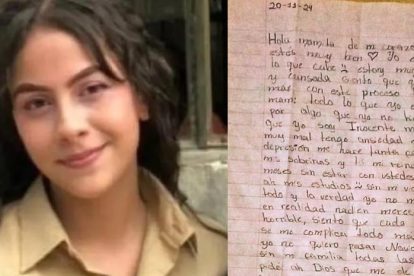 20-11-24
Hola mamita de mi corazo
estés muy bien ♡ Yo
lo que cabe estoy mu
y cansada siento que
mas con este proceso
mami todo lo que yo
por algo que yo no h
que yo soy Inocente
muy mal tengo ansiedad
depresión me hace falta
mis sobrinos y
meses sin estar con ustedes
sin mis estudios sin mi
todo y la verdad yo no
en realidad nadien merec
horrible, siento que cada
se me complica todo ma
yo no quiero pasar Navi
sin mi familia todas las
pido a Dios que me